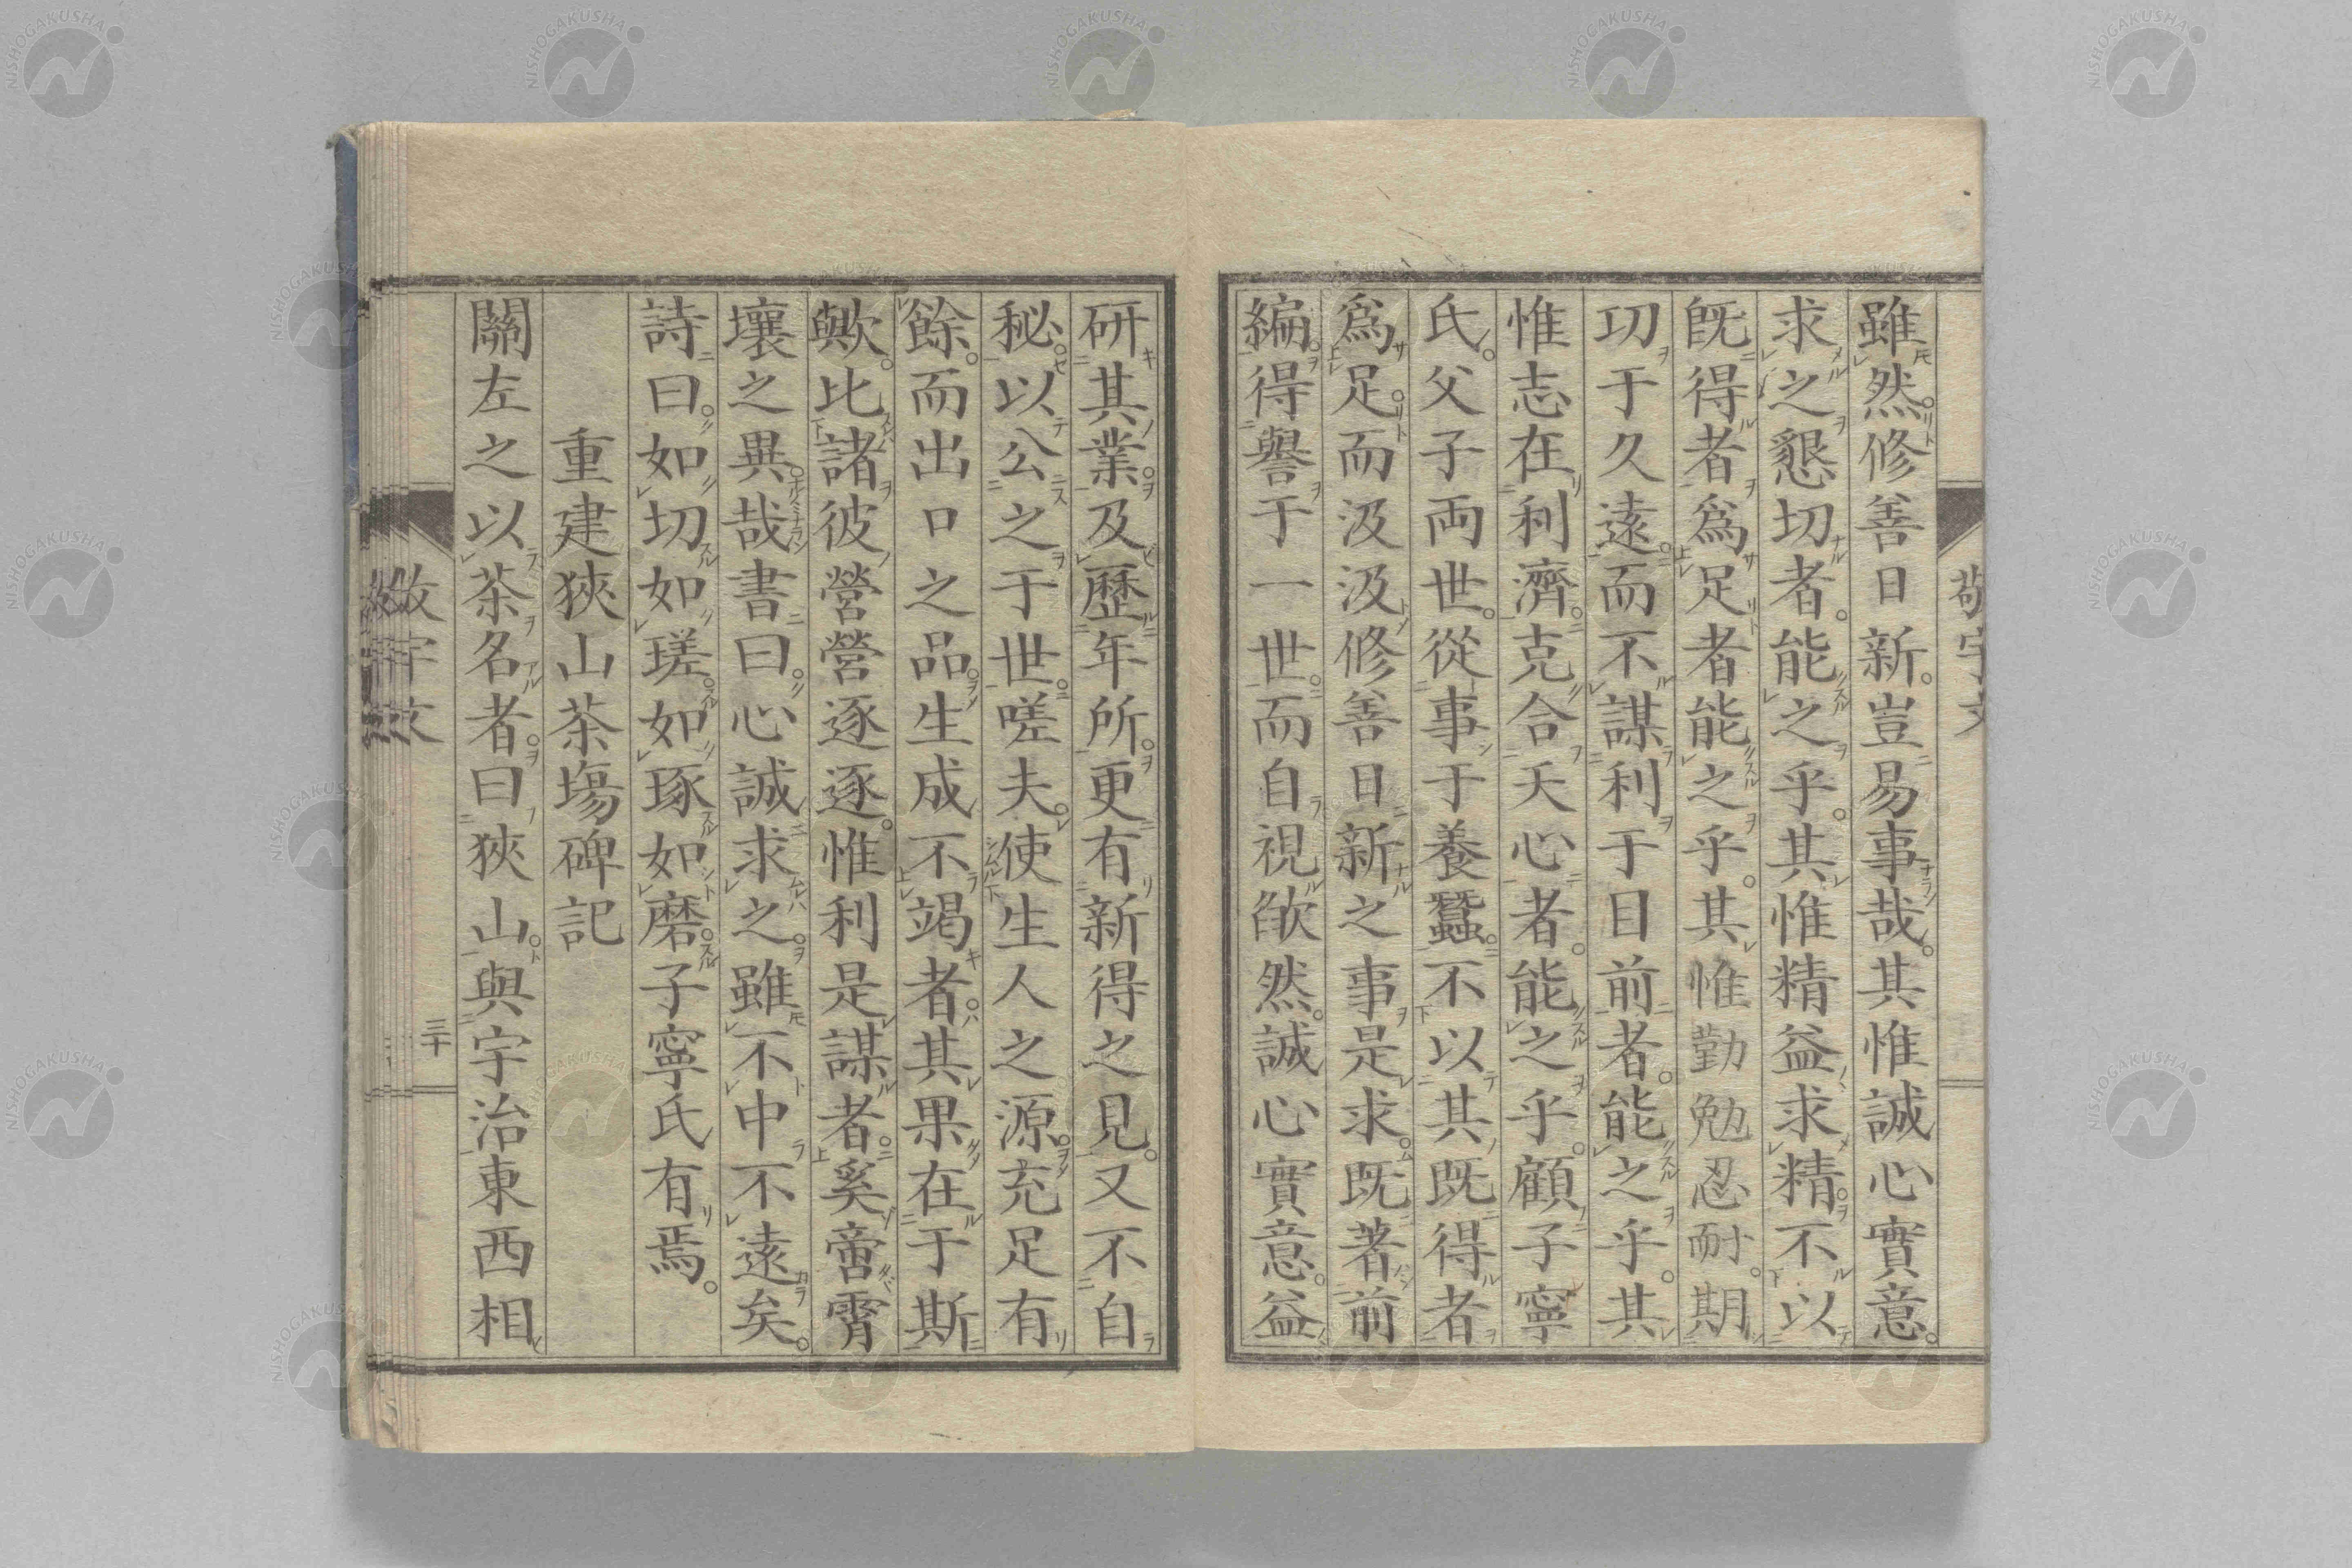 雖然修善日新。豈易事哉。其惟誠心實意。
求之懇切者。能之乎。其惟精益求精不以
既得者爲足者能之乎。其惟勤勉忍耐。期
功于久遠。而不謀利于目前者。能之乎。其
惟志在利濟。克合天心者。能之乎。顧子寧
氏。父子両世。從事于養蠶。不以其既得者
爲足。而汲汲修善日新之事是求。既著前
編。得譽于一世。而自視欿然。誠心實意。益
研其業。及歷年所。更有新得之見。又不自
秘。以公之于世。嗟夫。使生人之源。充足有
餘。而出口之品。生成不竭者。其果在于斯
歟。比諸彼營營逐逐。惟利是謀者。奚啻霄
壤之異哉。書曰。心誠求之。雖不中不遠矣。
詩曰。如切如瑳。如琢如磨。子寧氏有焉。
重建狹山茶塲碑記
關左之以茶名者。曰狹山。與宇治東西相
敬宇文
三十
NISHOGAKUSHA